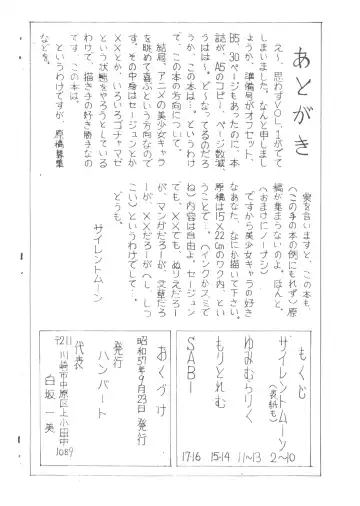 あとがき
え〜、思わずVOL.1がでて
しまいました。なんと申しまし
ょうか、準備号がオフセット、
B5、30ページもあったのに、本
誌が、A5のコピー、ページ数減、
うはは。ど〜なってるのだろ
うか、この本は…。というわけ
で、この本の方向について。
結局、アニメの美少女キャラ
を眺めて喜ぶという方向なので
す。その中身はセージュンとか
××とか、いろいろゴチャマゼ
という状態をやろうとしている
わけで、描き手の好き勝手なの
です、この本は。
というわけですが、原稿募集
などを。
実を言いますと、この本も、
(この手の本の例にもれず)原
稿が集まらないのよ。ほんと。
(おまけにノーナシ)
ですから美少女キャラの好き
なあなた、なにか描いて下さい。
原稿は15×22cmのワク内、とい
うことで…。(インクかスミで
ね)内容は自由よ。セージュン
でも、××でも、ぬりえだろー
が、マンガだろーが、文章だろ
ーが、××だろーが(し、しつ
こい)というわけでして…。
どうも。
サイレントムーン
もくじ
サイレントムーン 2〜10
(表紙も)
ゆみむらりく 11〜13
もりとれむ 15・14
SABI 17・16
おくづけ
昭和57年9月23日発行
発行
ハンバート
代表
〒211
川崎市中原区上小田中
1089
白坂一美